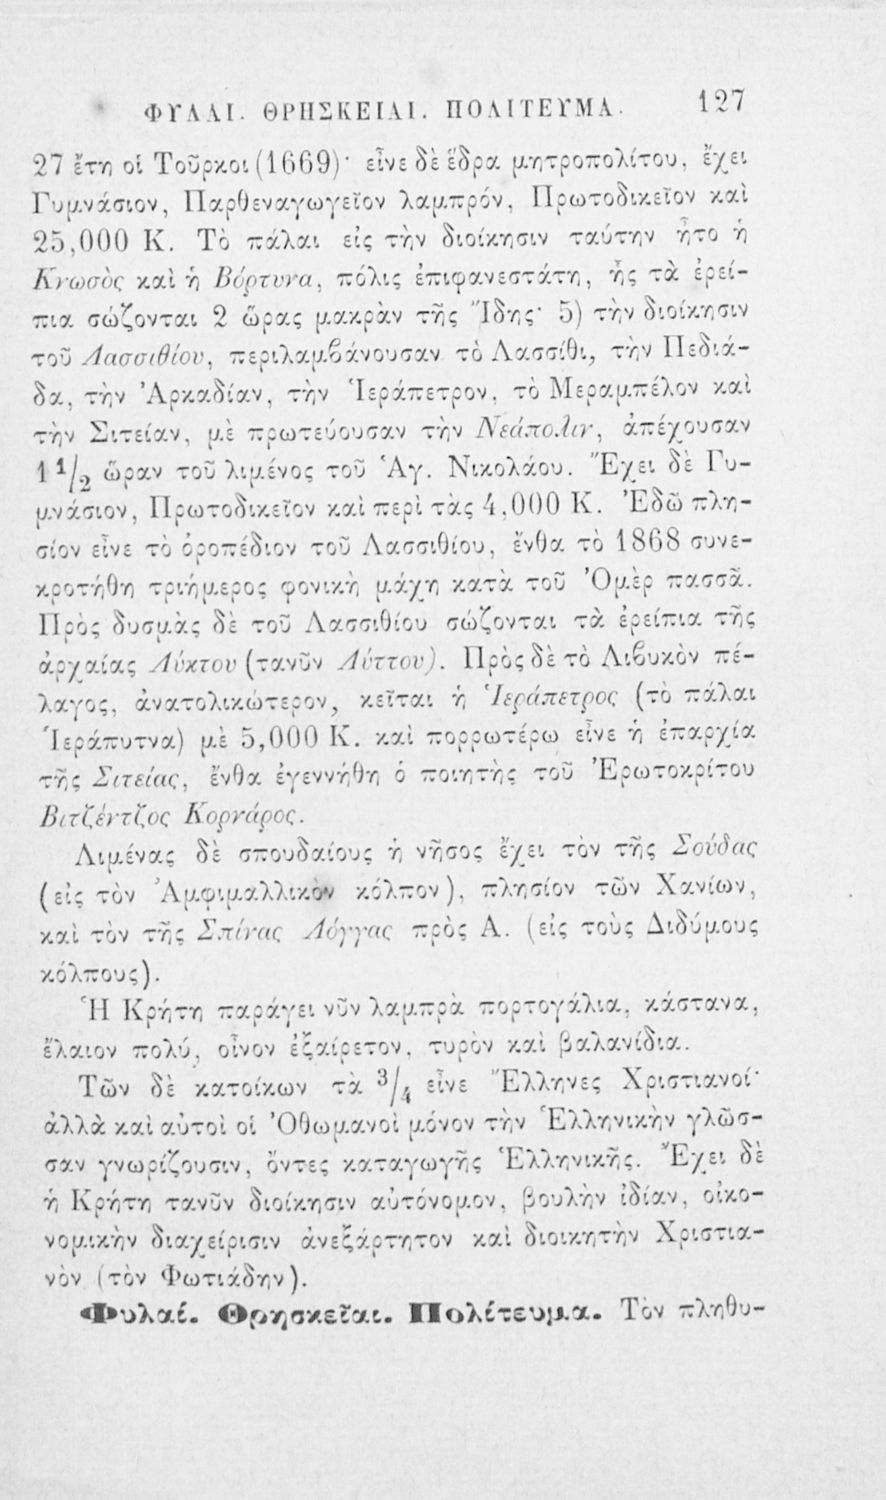 ΦΥΛΑΙ. ΘΡΗΣΚΕΙΑΙ. ΠΟΛΙΤΕΥΜΑ. 127
27 ἔτη οἱ Τοῦρκοι (1669)· εἶνε δὲ ἕδρα μητροπολίτου, ἔχει
Γυμνάσιον, Παρθεναγωγεῖον λαμπρόν, Πρωτοδικεῖον καὶ
25,000 Κ. Τὸ πάλαι εἰς τὴν διοίκησιν ταύτην ἦτο ἡ
Κνωσὸς καὶ ἡ Βόρτυνα, πόλις ἐπιφανεστάτη, ἧς τὰ ἐρεί-
πια σώζονται 2 ὥρας μακρὰν τῆς Ἴδης· 5) τὴν διοίκησιν
τοῦ Λασσιθίου, περιλαμβάνουσαν τὸ Λασσίθι, τὴν Πεδιά-
δα, τὴν Ἀρκαδίαν, τὴν Ἱεράπετρον, τὸ Μεραμπέλον καὶ
τὴν Σιτείαν, μὲ πρωτεύουσαν τὴν Νεάπολιν, ἀπέχουσαν
1 1/2 ὥραν τοῦ λιμένος τοῦ Ἁγ. Νικολάου. Ἔχει δὲ Γυ-
μνάσιον, Πρωτοδικεῖον καὶ περὶ τὰς 4,000 Κ. Ἐδῶ πλη-
σίον εἶνε τὸ ὀροπέδιον τοῦ Λασσιθίου, ἔνθα τὸ 1868 συνε-
κροτήθη τριήμερος φονικὴ μάχη κατὰ τοῦ Ὀμὲρ πασσᾶ.
Πρὸς δυσμὰς δὲ τοῦ Λασσιθίου σώζονται τὰ ἐρείπια τῆς
ἀρχαίας Λύκτου (τανῦν Λύττου). Πρὸς δὲ τὸ Λιβυκὸν πέ-
λαγος, ἀνατολικώτερον, κεῖται ἡ Ἱεράπετρος (τὸ πάλαι
Ἱεράπυτνα) μὲ 5,000 Κ. καὶ πορρωτέρω εἶνε ἡ ἐπαρχία
τῆς Σιτείας, ἔνθα ἐγεννήθη ὁ ποιητὴς τοῦ Ἐρωτοκρίτου
Βιτζέντζος Κορνάρος.
Λιμένας δὲ σπουδαίους ἡ νῆσος ἔχει τὸν τῆς Σούδας
(εἰς τὸν Ἀμφιμαλλικὸν κόλπον), πλησίον τῶν Χανίων,
καὶ τὸν τῆς Σπίνας Λόγγας πρὸς Α. (εἰς τοὺς Διδύμους
κόλπους).
Ἡ Κρήτη παράγει νῦν λαμπρὰ πορτογάλια, κάστανα,
ἔλαιον πολύ, οἶνον ἐξαίρετον, τυρὸν καὶ βαλανίδια.
Τῶν δὲ κατοίκων τὰ 3/4 εἶνε Ἕλληνες Χριστιανοί·
ἀλλὰ καὶ αὐτοὶ οἱ Ὀθωμανοὶ μόνον τὴν Ἑλληνικὴν γλῶσ-
σαν γνωρίζουσιν, ὄντες καταγωγῆς Ἑλληνικῆς. Ἔχει δὲ
ἡ Κρήτη τανῦν διοίκησιν αὐτόνομον, βουλὴν ἰδίαν, οἰκο-
νομικὴν διαχείρισιν ἀνεξάρτητον καὶ διοικητὴν Χριστια-
νὸν (τὸν Φωτιάδην).
Φυλαί. Θρησκεῖαι. Πολίτευμα. Τὸν πληθυ-